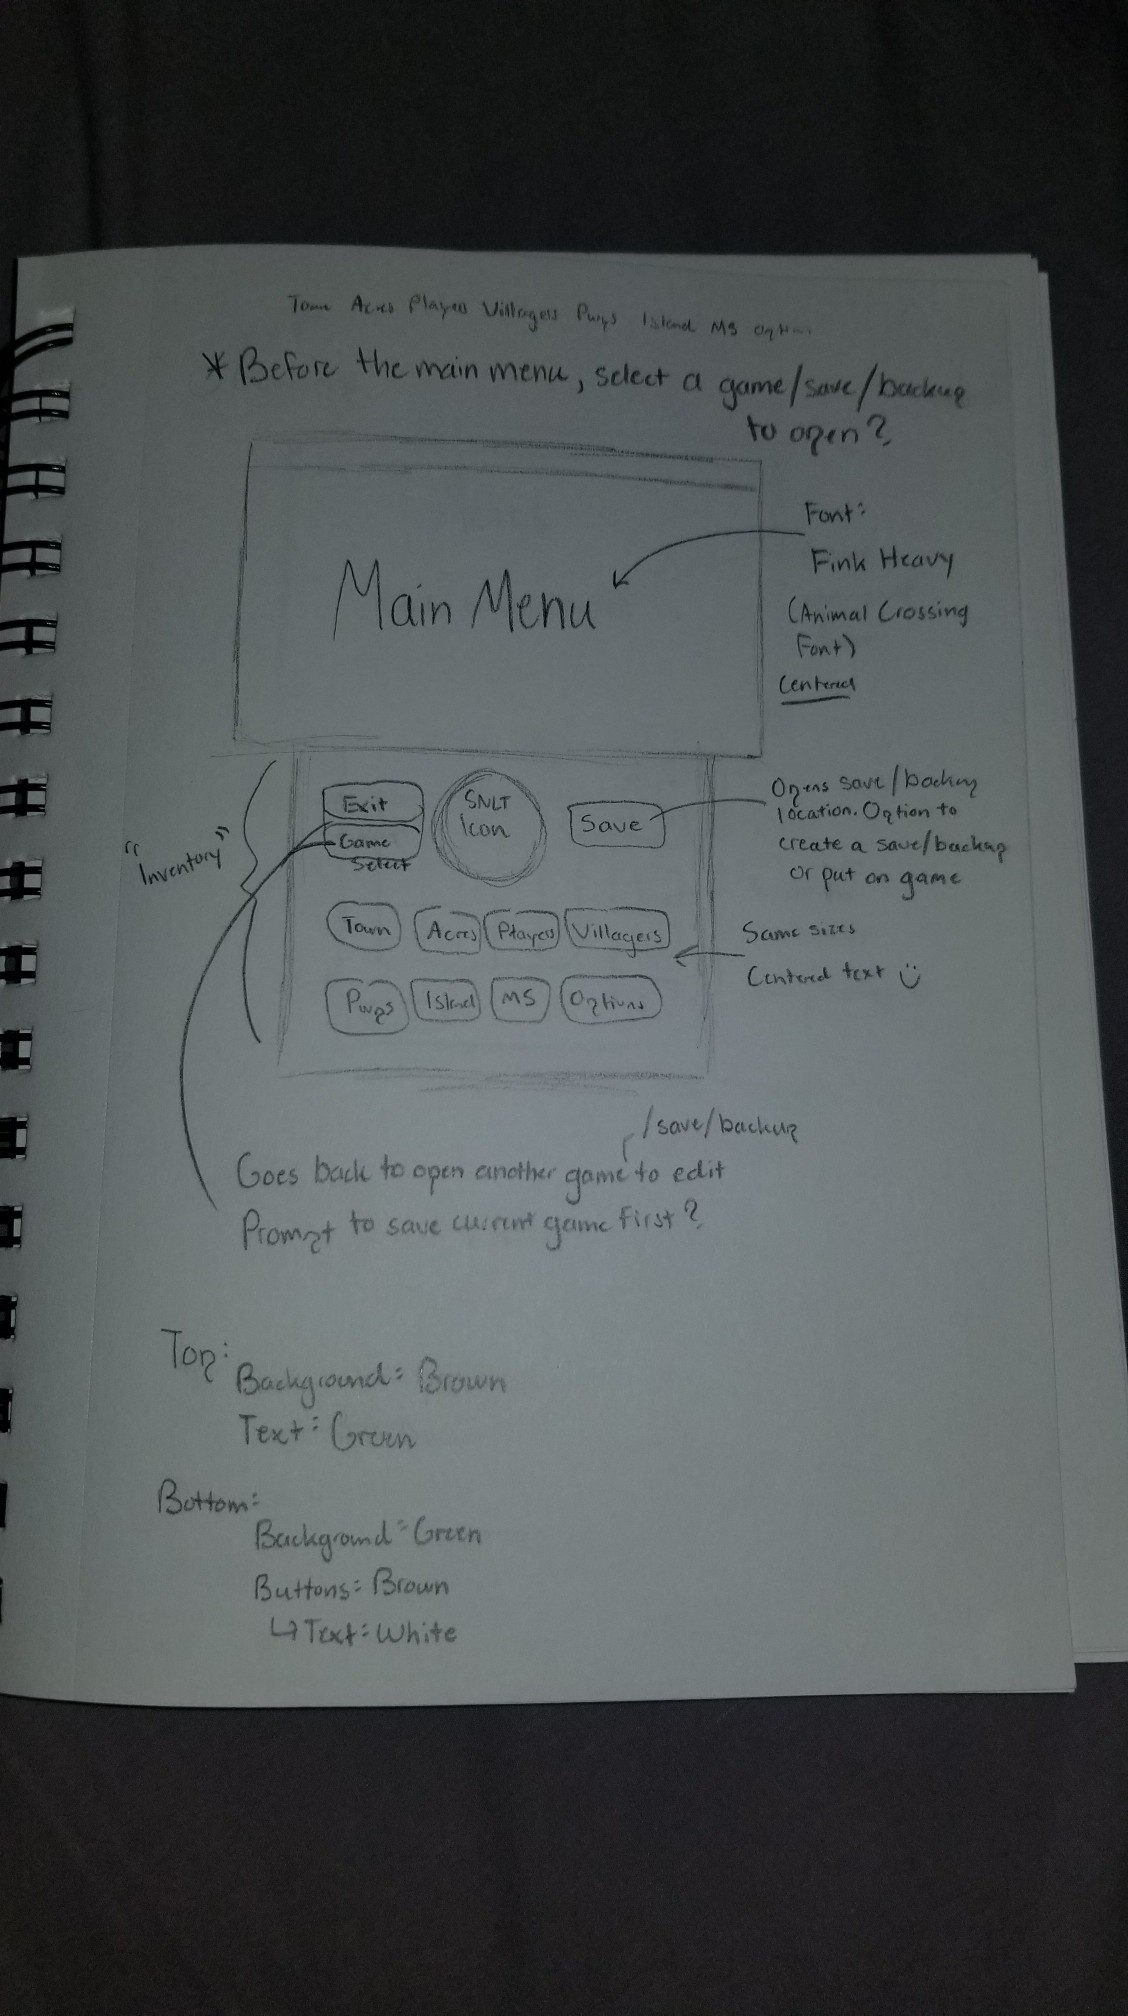 Town Acres Players Villagers Pwps Island MS Options
* Before the main menu, select a game/save/backup
to open?
Main Menu
Font:
Fink Heavy
(Animal Crossing
Font)
Centered
"Inventory"
Exit
Game
Select
SNLT
Icon
Save
Opens save/backup
location. Option to
create a save/backup
or put on game
Town Acres Players Villagers
Pwps Island MS Options
Same sizes
Centered text ☺
/save/backup
Goes back to open another game to edit
Prompt to save current game first?
Top:
Background: Brown
Text: Green
Bottom:
Background: Green
Buttons: Brown
↳ Text: White